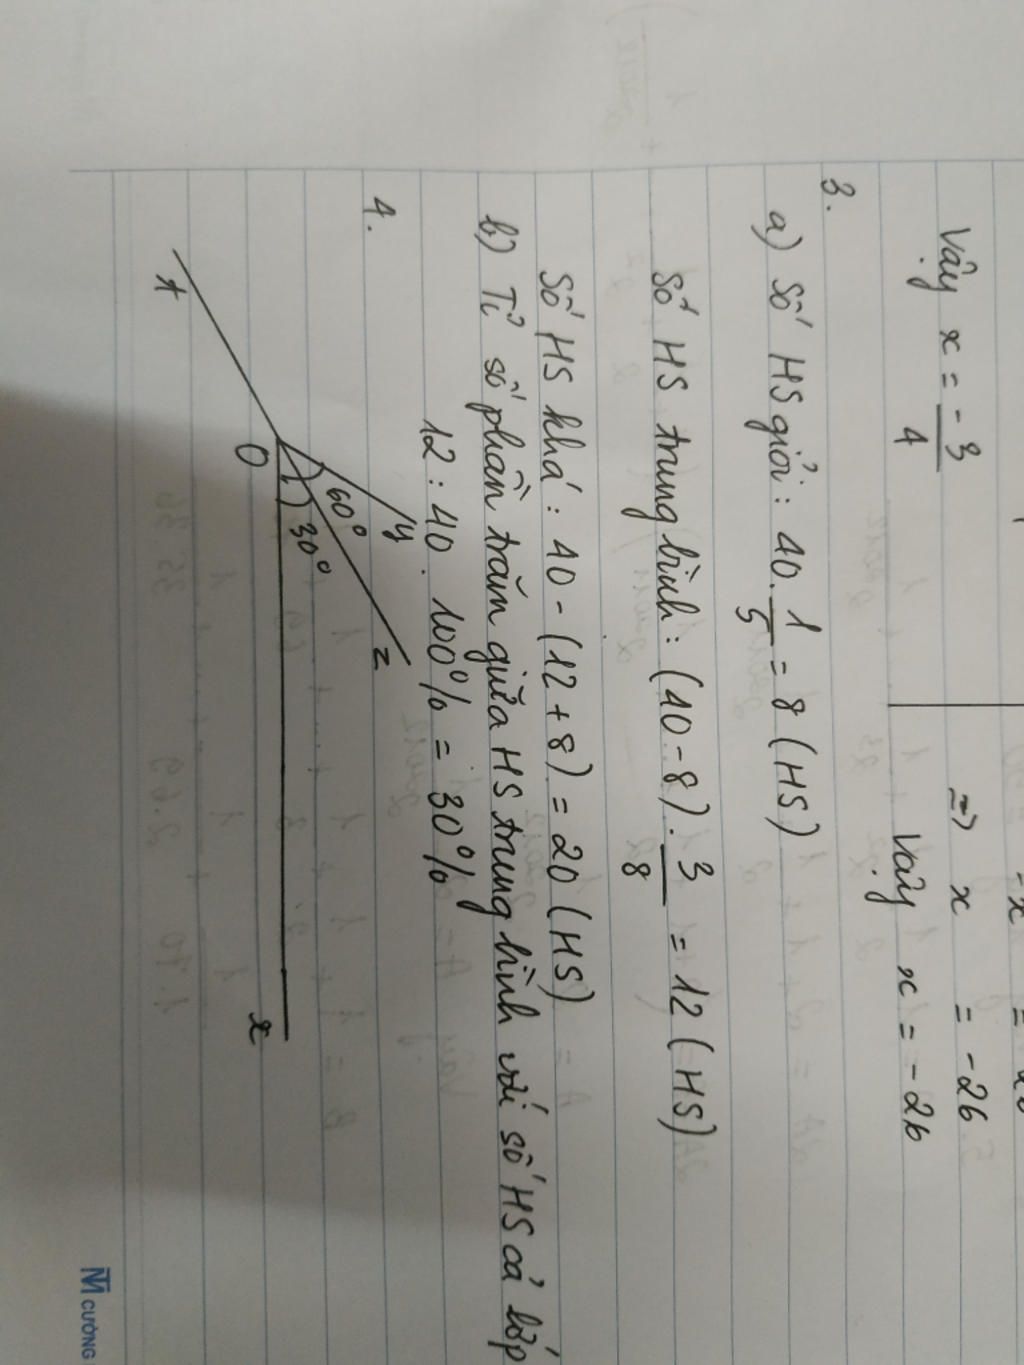 = -26
Vậy x = -3/4
=> x = -26
Vậy x = -26
3.
a) Số HS giỏi: 40 . 1/5 = 8 (HS)
Số HS trung bình: (40 - 8) . 3/8 = 12 (HS)
Số HS khá: 40 - (12 + 8) = 20 (HS)
b) Tỉ số phần trăm giữa HS trung bình với số HS cả lớp
12 : 40 . 100% = 30%
4.
y
z
60°
30°
O
x
t
CƯỜNG